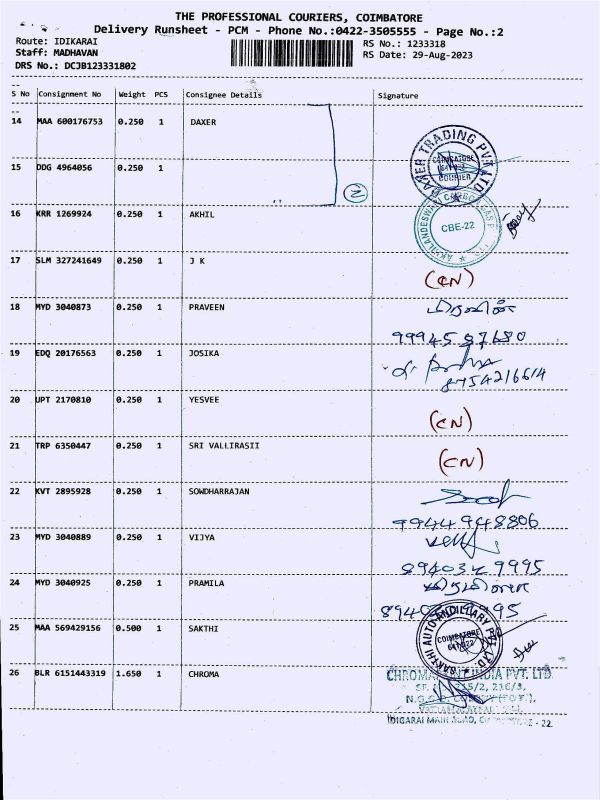 THE PROFESSIONAL COURIERS, COIMBATORE
Delivery Runsheet - PCM - Phone No.:0422-3505555 - Page No.:2
Route: IDIKARAI
RS No.: 1233318
Staff: MADHAVAN
RS Date: 29-Aug-2023
DRS No.: DCJB123331802
S No Consignment No Weight PCS Consignee Details Signature
14 MAA 600176753 0.250 1 DAXER
15 DDG 4964056 0.250 1
COIMBATORE
COURIER
16 KRR 1269924 0.250 1 AKHIL
CBE-22
17 SLM 327241649 0.250 1 J K
(CN)
18 MYD 3040873 0.250 1 PRAVEEN
19 EDQ 20176563 0.250 1 JOSIKA
8754216614
20 UPT 2170810 0.250 1 YESVEE
(CN)
21 TRP 6350447 0.250 1 SRI VALLIRASII
(CN)
22 KVT 2895928 0.250 1 SOWDHARRAJAN
9944948806
23 MYD 3040889 0.250 1 VIJYA
24 MYD 3040925 0.250 1 PRAMILA
25 MAA 569429156 0.500 1 SAKTHI
COIMBATORE
26 BLR 6151443319 1.650 1 CHROMA
INDIA PVT. LTD.
215/2, 216/3,